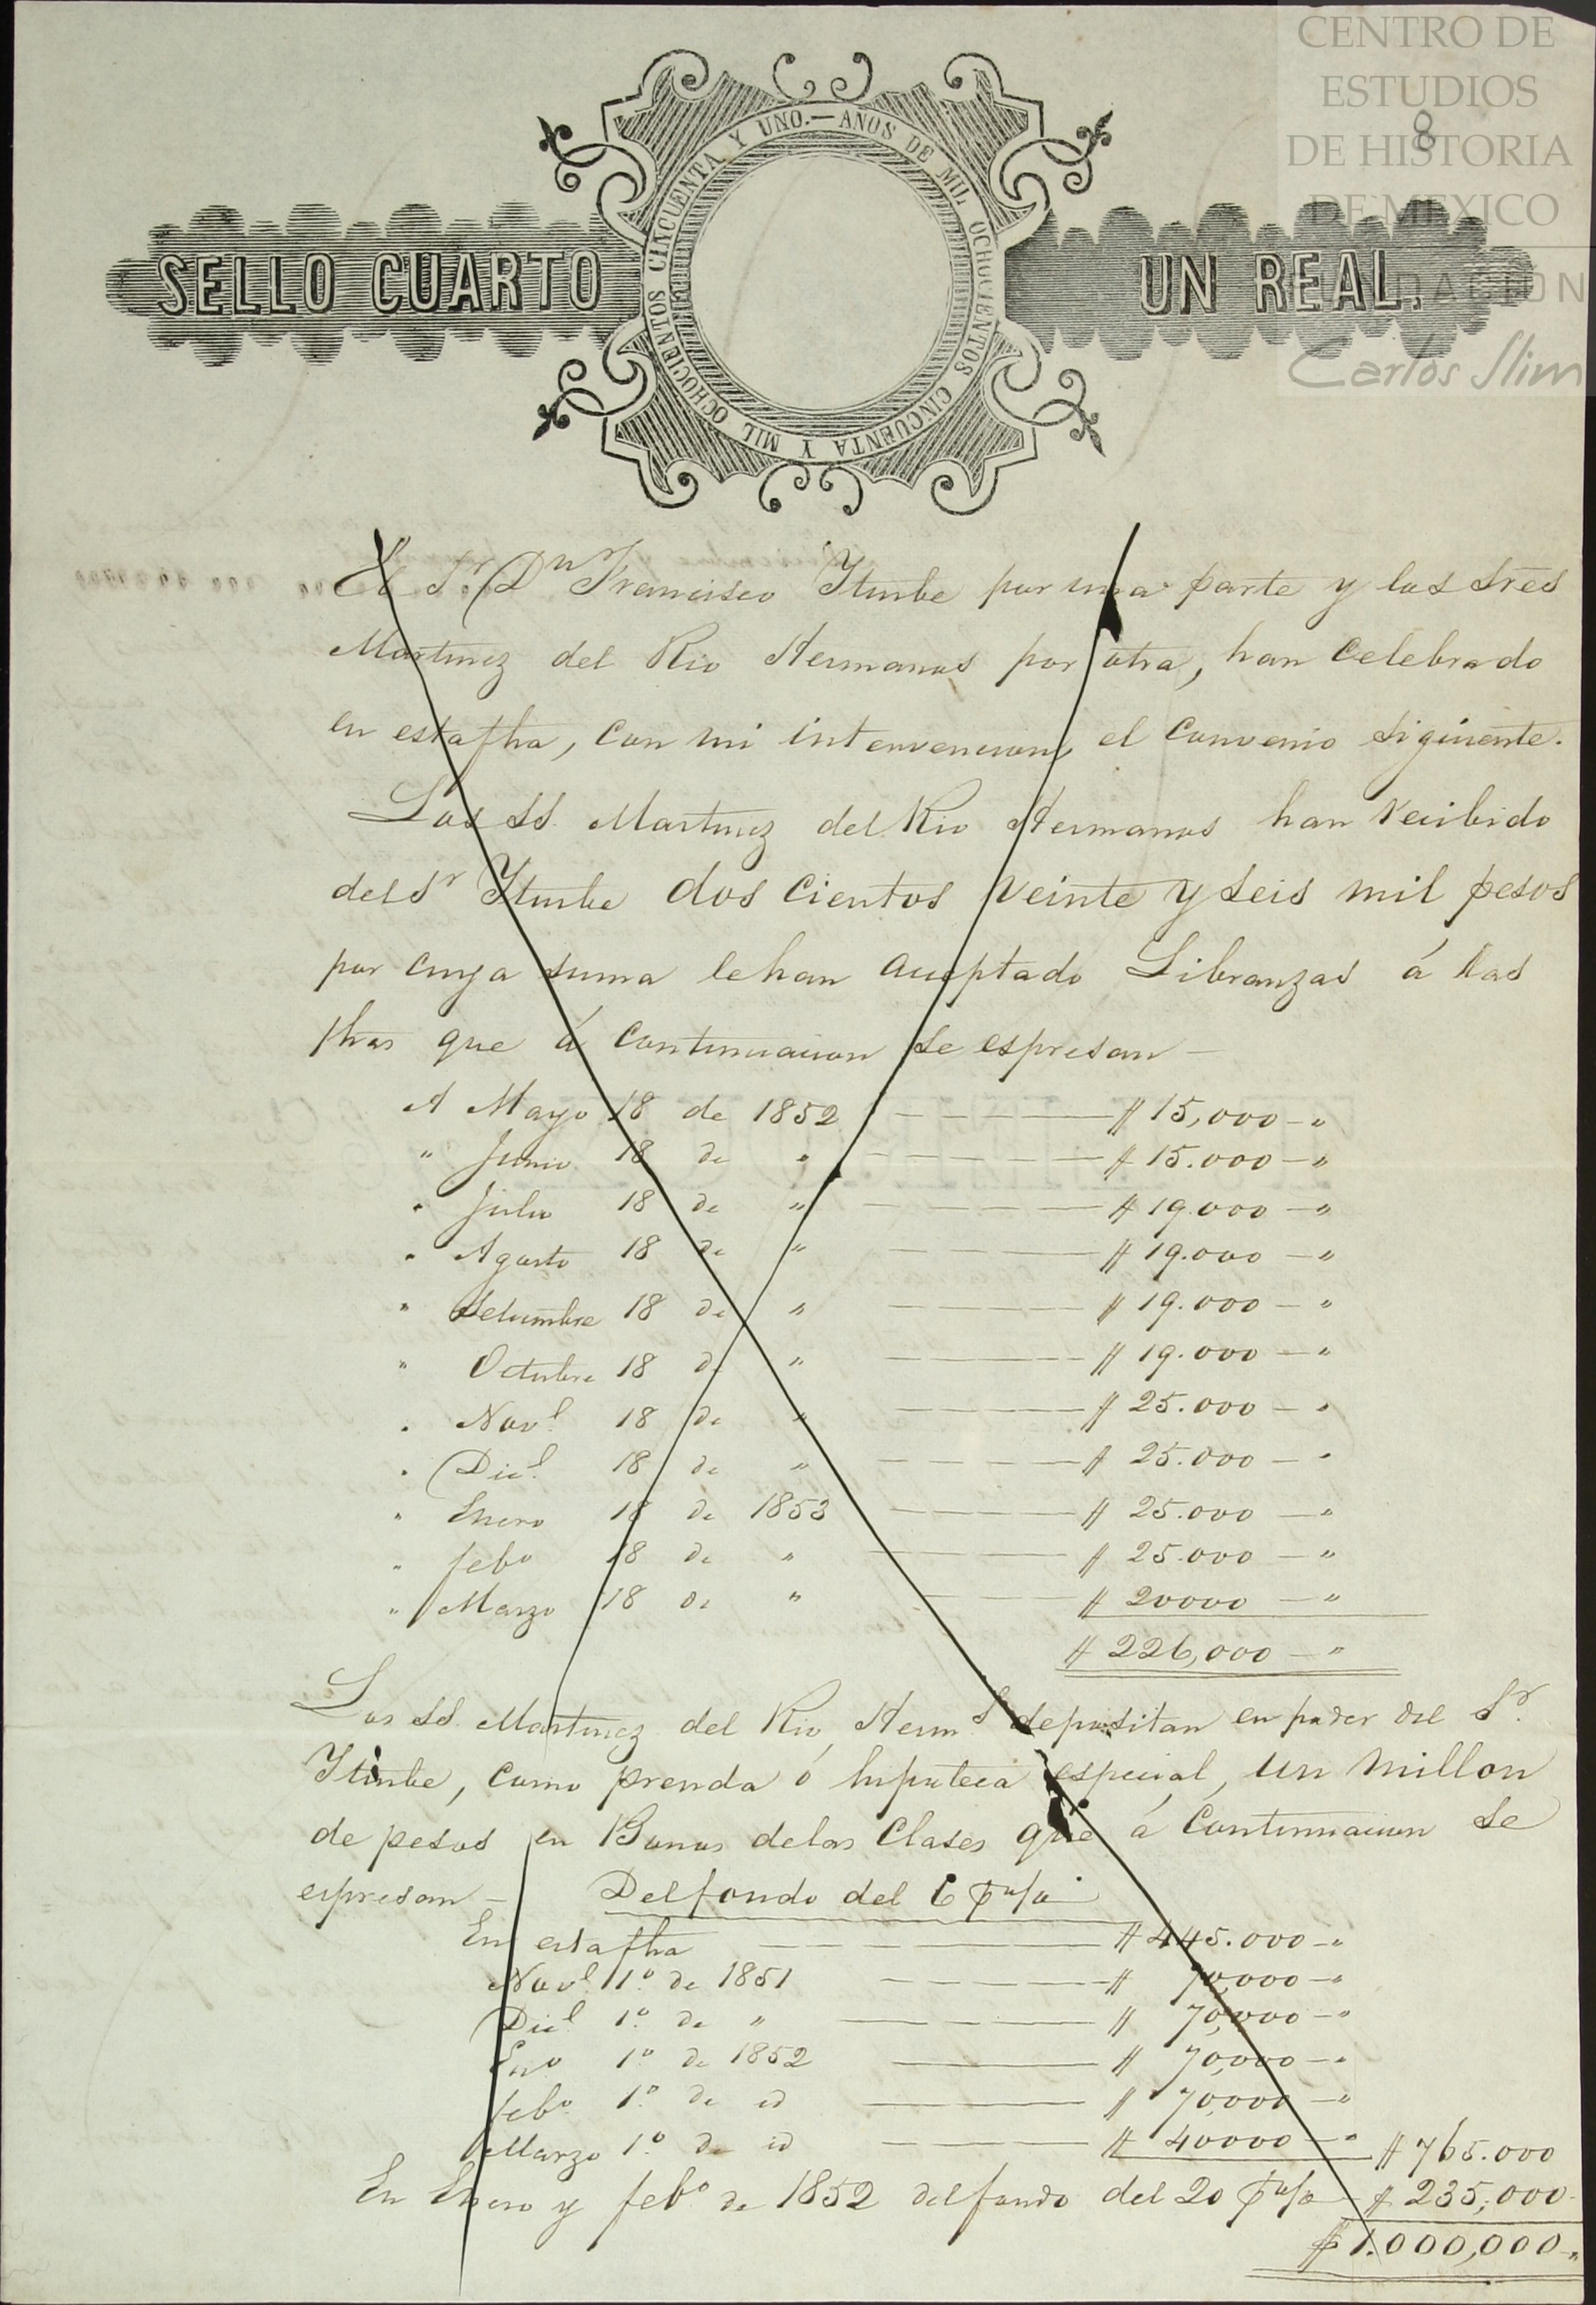 CENTRO DE
ESTUDIOS
8
DE HISTORIA
DE MEXICO
FUNDACION
Carlos Slim
SELLO CUARTO
UN REAL.
AÑOS DE MIL OCHOCIENTOS CINCUENTA Y MIL OCHOCIENTOS CINCUENTA Y UNO.—
El Sr. Dn Francisco Yturbe por una parte y los Sres
Martinez del Rio Hermanos por otra, han celebrado
en esta fha, con mi intervencion, el convenio siguiente.
Los SS. Martinez del Rio Hermanos han recibido
del Sr Yturbe dos cientos veinte y seis mil pesos
por cuya suma le han aceptado Libranzas á las
fhas que á continuacion se espresan —
A Mayo 18 de 1852 — $ 15,000 — "
" Junio 18 de " — $ 15.000 — "
" Julio 18 de " — $ 19.000 — "
" Agosto 18 de " — $ 19.000 — "
" Setiembre 18 de " — $ 19.000 — "
" Octubre 18 de " — $ 19.000 — "
" Nove 18 de " — $ 25.000 — "
" Dice 18 de " — $ 25.000 — "
" Enero 18 de 1853 — $ 25.000 — "
" febo 18 de " — $ 25.000 — "
" Marzo 18 de " — $ 20000 — "
$ 226,000 — "
Los SS. Martinez del Rio Herms depositan en poder del Sr.
Yturbe, como prenda ó hipoteca especial, un millon
de pesos en Bonos de las Clases que á continuacion se
espresan — Del fondo del 6 p%
En esta fha — $ 445.000 — "
Nove 1º de 1851 — $ 70,000 — "
Dice 1º de " — $ 70,000 — "
Eno 1º de 1852 — $ 70,000 — "
febo 1º de id — $ 70,000 — "
Marzo 1º de id — $ 40000 — " $ 765.000
En Enero y febo de 1852 del fondo del 20 p% — $ 235,000
$ 1.000,000 "